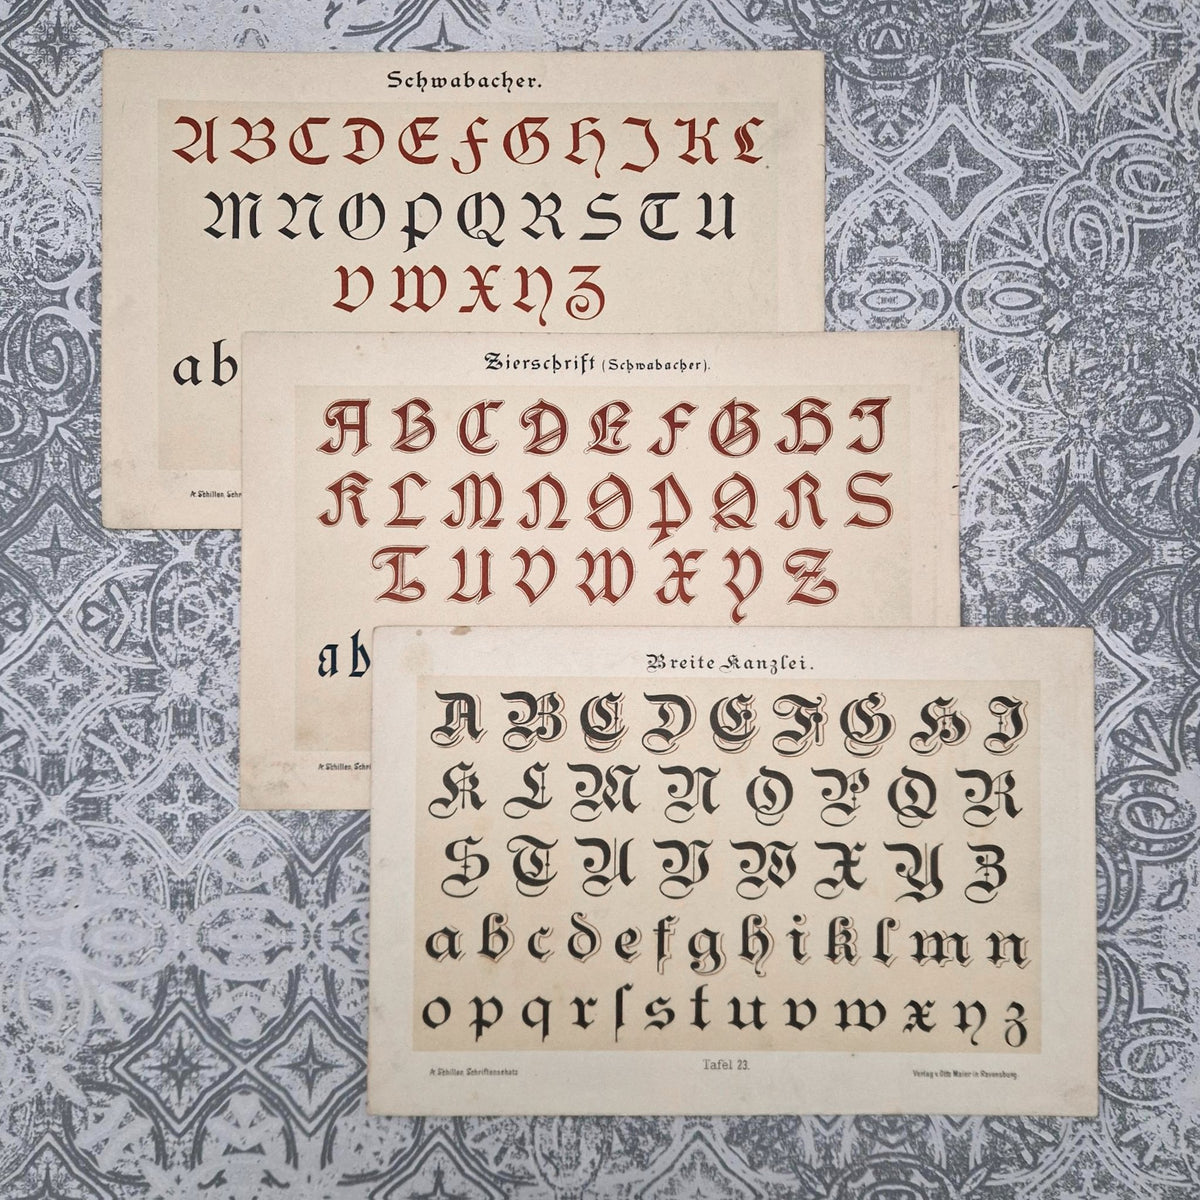 Schwabacher.
A B C D E F G H I K L
M N O P Q R S T U
V W X Y Z
a b
A. Schiller, Schr
Zierschrift (Schwabacher).
A B C D E F G H I
K L M N O P Q R S
T U V W X Y Z
a b
A. Schiller, Schri
Breite Kanzlei.
A B C D E F G H I
K L M N O P Q R
S T U V W X Y Z
a b c d e f g h i k l m n
o p q r ſ s t u v w x y z
Tafel 23.
A. Schiller, Schriftenschatz
Verlag v. Otto Maier in Ravensburg.